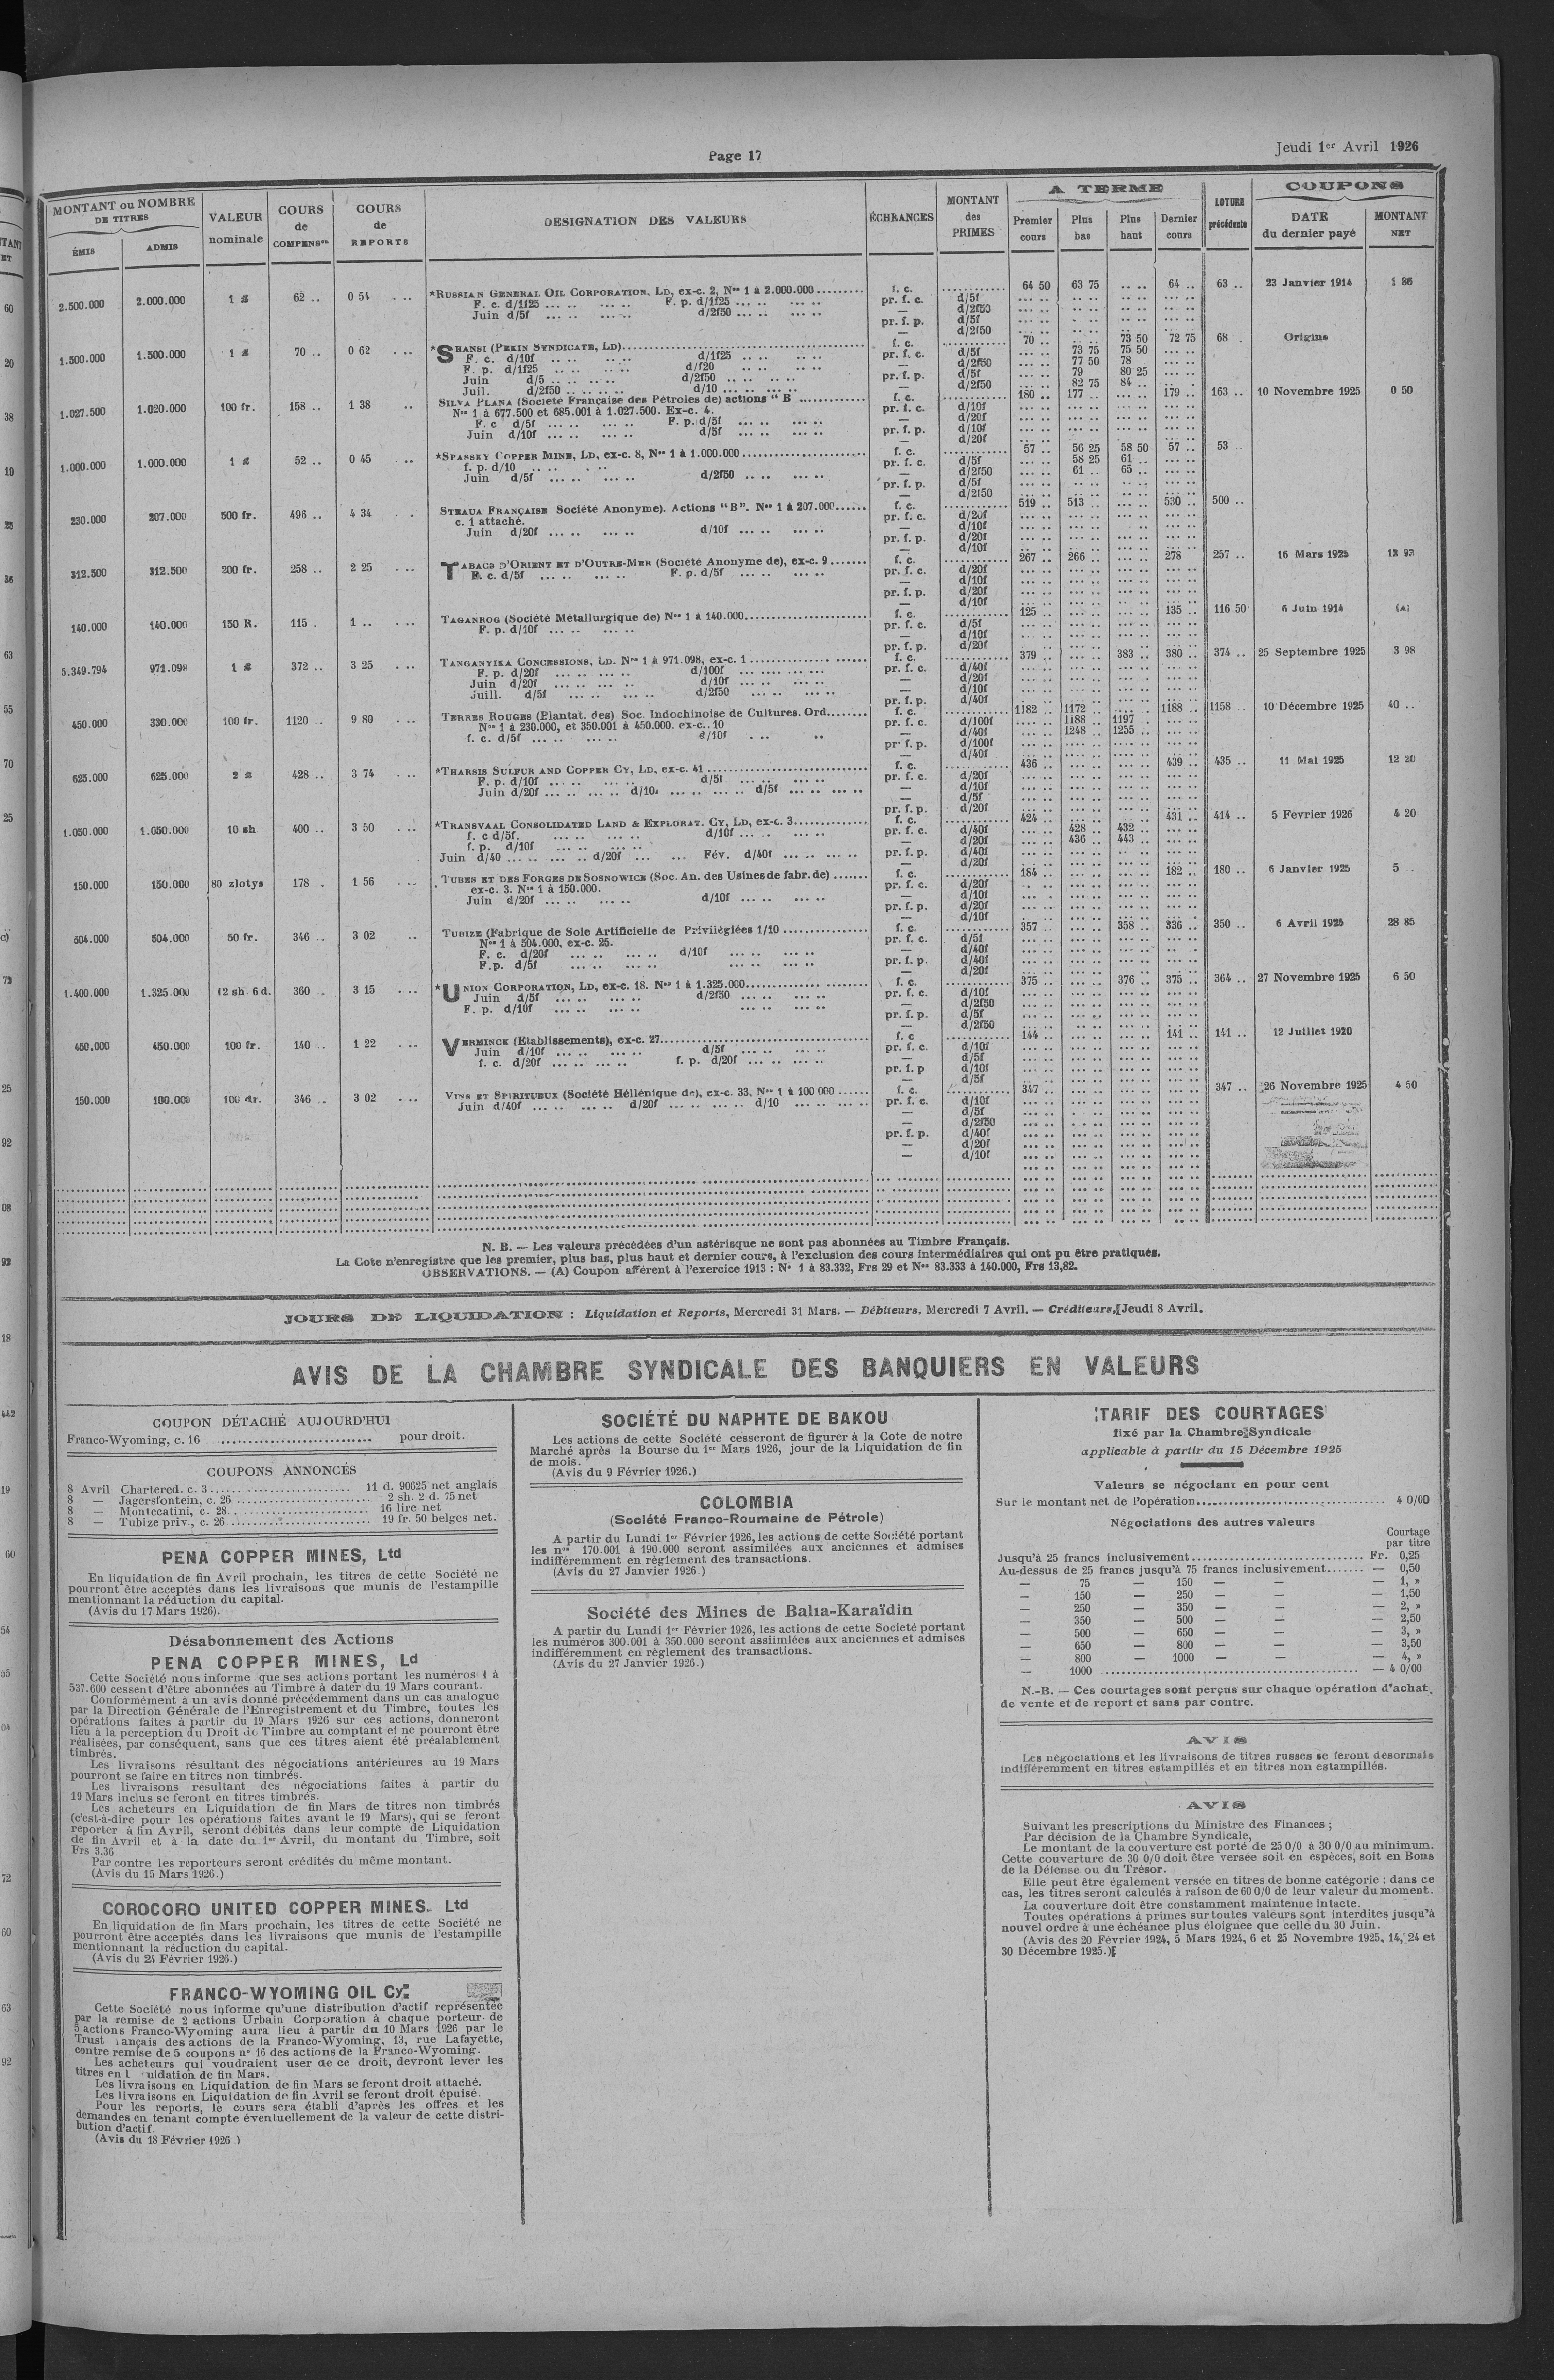 Page 17
Jeudi 1er Avril 1926
MONTANT ou NOMBRE DE TITRES
ÉMIS
ADMIS
VALEUR nominale
COURS de COMPENSon
COURS de REPORTS
DESIGNATION DES VALEURS
ÉCHEANCES
MONTANT des PRIMES
A TERME
Premier cours
Plus bas
Plus haut
Dernier cours
précédente
COUPONS
DATE du dernier payé
MONTANT NET
2.500.000 2.000.000 1 £ 62 .. 0 54 *RUSSIAN GENERAL OIL CORPORATION, LD, ex-c. 2, Nos 1 à 2.000.000 f. c. 64 50 63 75 .. .. 64 .. 63 .. 23 Janvier 1914 1 86
F. c. d/1f25 F. p. d/1f25 pr. f. c. d/5f
Juin d/5f d/2f50 — d/2f50
pr. f. p. d/5f
— d/2f50
1.500.000 1.500.000 1 £ 70 .. 0 62 *SHANSI (PEKIN SYNDICATE, LD) f. c. 70 .. .. .. 73 50 72 75 68 . Origine
F. c. d/10f d/1f25 pr. f. c. d/5f 73 75 75 50
F. p. d/1f25 d/f20 — d/2f50 77 50 78
Juin d/5 d/2f50 pr. f. p. d/5f 79 80 25
Juil. d/2f50 d/10 — d/2f50 82 75 84 ..
1.027.500 1.020.000 100 fr. 158 .. 1 38 SILVA PLANA (Société Française des Pétroles de) actions "B f. c. 180 .. 177 .. 179 .. 163 .. 10 Novembre 1925 0 50
Nos 1 à 677.500 et 685.001 à 1.027.500. Ex-c. 4. pr. f. c. d/10f
F. c d/5f F. p. d/5f — d/20f
Juin d/10f d/5f pr. f. p. d/10f
— d/20f
1.000.000 1.000.000 1 £ 52 .. 0 45 *SPASSKY COPPER MINE, LD, ex-c. 8, Nos 1 à 1.000.000 f. c. 57 .. 56 25 58 50 57 .. 53 .
f. p. d/10 pr. f. c. d/5f 58 25 61 ..
Juin d/5f d/2f50 — d/2f50 61 .. 65 ..
pr. f. p. d/5f
— d/2f50
230.000 207.000 500 fr. 496 .. 4 34 STEAUA FRANÇAISE Société Anonyme). Actions "B". Nos 1 à 207.000 f. c. 519 .. 513 .. 530 .. 500 ..
c. 1 attaché. pr. f. c. d/20f
Juin d/20f d/10f — d/10f
pr. f. p. d/20f
— d/10f
312.500 312.500 200 fr. 258 .. 2 25 TABACS D'ORIENT ET D'OUTRE-MER (Société Anonyme de), ex-c. 9 f. c. 267 .. 266 .. 278 257 .. 16 Mars 1925 12 93
F. c. d/5f F. p. d/5f pr. f. c. d/20f
— d/10f
pr. f. p. d/20f
— d/10f
140.000 140.000 150 R. 115 . 1 .. TAGANROG (Société Métallurgique de) Nos 1 à 140.000 f. c. 125 .. 135 .. 116 50 6 Juin 1914 (A)
F. p. d/10f pr. f. c. d/5f
— d/10f
pr. f. p. d/20f
5.349.794 971.098 1 £ 372 .. 3 25 TANGANYIKA CONCESSIONS, LD. Nos 1 à 971.098, ex-c. 1 f. c. 379 .. 383 .. 380 .. 374 .. 25 Septembre 1925 3 98
F. p. d/20f d/100f pr. f. c. d/40f
Juin d/20f d/10f — d/20f
Juill. d/5f d/2f50 — d/10f
pr. f. p. d/40f
450.000 330.000 100 fr. 1120 .. 9 80 TERRES ROUGES (Plantat. des) Soc. Indochinoise de Cultures. Ord. f. c. 1182 .. 1172 .. 1188 .. 1158 .. 10 Décembre 1925 40 ..
Nos 1 à 230.000, et 350.001 à 450.000. ex-c.. 10 pr. f. c. d/100f 1188 .. 1197 ..
f. c. d/5f d/10f — d/40f 1248 .. 1255 ..
pr. f. p. d/100f
— d/40f
625.000 625.000 2 £ 428 .. 3 74 *THARSIS SULFUR AND COPPER CY, LD, ex-c. 41 f. c. 436 .. 439 .. 435 .. 11 Mai 1925 12 20
F. p. d/10f d/5f pr. f. c. d/20f
Juin d/20f d/10f d/5f — d/10f
— d/5f
pr. f. p. d/20f
1.050.000 1.050.000 10 sh 400 .. 3 50 *TRANSVAAL CONSOLIDATED LAND & EXPLORAT. CY, LD, ex-c. 3 f. c. 424 .. 431 .. 414 .. 5 Fevrier 1926 4 20
f. c d/5f. d/10f pr. f. c. d/40f 428 .. 432 ..
f. p. d/10f — d/20f 436 .. 443 ..
Juin d/40 d/20f Fév. d/40f pr. f. p. d/40f
— d/20f
150.000 150.000 80 zlotys 178 . 1 56 TUBES ET DES FORGES DE SOSNOWICE (Soc. An. des Usines de fabr. de) f. c. 184 .. 182 .. 180 .. 6 Janvier 1925 5 ..
ex-c. 3. Nos 1 à 150.000. pr. f. c. d/20f
Juin d/20f d/10f — d/10f
pr. f. p. d/20f
— d/10f
504.000 504.000 50 fr. 346 .. 3 02 TUBIZE (Fabrique de Soie Artificielle de Privilégiées 1/10 f. c. 357 .. 358 .. 336 .. 350 .. 6 Avril 1925 28 85
Nos 1 à 504.000, ex-c. 25. pr. f. c. d/5f
F. c. d/20f d/10f — d/40f
F.p. d/5f pr. f. p. d/40f
— d/20f
1.400.000 1.325.000 12 sh. 6 d. 360 .. 3 15 *UNION CORPORATION, LD, ex-c. 18. Nos 1 à 1.325.000 f. c. 375 .. 376 .. 375 .. 364 .. 27 Novembre 1925 6 50
Juin d/5f d/2f50 pr. f. c. d/10f
F. p. d/10f — d/2f50
pr. f. p. d/5f
— d/2f50
450.000 450.000 100 fr. 140 .. 1 22 VERMINCK (Etablissements), ex-c. 27 f. c 144 .. 141 .. 141 .. 12 Juillet 1920
Juin d/10f d/5f pr. f. c. d/10f
f. c. d/20f f. p. d/20f — d/5f
pr. f. p d/10f
— d/5f
150.000 100.000 100 dr. 346 .. 3 02 VINS ET SPIRITUEUX (Société Héllénique de), ex-c. 33, Nos 1 à 100 000 f. c. 347 .. 347 .. 26 Novembre 1925 4 50
Juin d/40f d/20f d/10 pr. f. c. d/10f
— d/5f
— d/2f50
pr. f. p. d/40f
— d/20f
— d/10f
N. B. — Les valeurs précédées d'un astérisque ne sont pas abonnées au Timbre Français.
La Cote n'enregistre que les premier, plus bas, plus haut et dernier cours, à l'exclusion des cours intermédiaires qui ont pu être pratiqués.
OBSERVATIONS. — (A) Coupon afférent à l'exercice 1913 : N° 1 à 83.332, Frs 29 et Nos 83.333 à 140.000, Frs 13,82.
JOURS DE LIQUIDATION : Liquidation et Reports, Mercredi 31 Mars. — Débiteurs, Mercredi 7 Avril. — Créditeurs, Jeudi 8 Avril.
AVIS DE LA CHAMBRE SYNDICALE DES BANQUIERS EN VALEURS
COUPON DÉTACHÉ AUJOURD'HUI
Franco-Wyoming, c. 16 pour droit.
COUPONS ANNONCÉS
8 Avril Chartered. c. 3 11 d. 90625 net anglais
8 — Jagersfontein, c. 26 2 sh. 2 d. 75 net
8 — Montecatini, c. 28 16 lire net
8 — Tubize priv., c. 26 19 fr. 50 belges net.
PENA COPPER MINES, Ltd
En liquidation de fin Avril prochain, les titres de cette Société ne
pourront être acceptés dans les livraisons que munis de l'estampille
mentionnant la réduction du capital.
(Avis du 17 Mars 1926).
Désabonnement des Actions
PENA COPPER MINES, Ld
Cette Société nous informe que ses actions portant les numéros 1 à
537.600 cessent d'être abonnées au Timbre à dater du 19 Mars courant.
Conformément à un avis donné précédemment dans un cas analogue
par la Direction Générale de l'Enregistrement et du Timbre, toutes les
opérations faites à partir du 19 Mars 1926 sur ces actions, donneront
lieu à la perception du Droit de Timbre au comptant et ne pourront être
réalisées, par conséquent, sans que ces titres aient été préalablement
timbrés.
Les livraisons résultant des négociations antérieures au 19 Mars
pourront se faire en titres non timbrés.
Les livraisons résultant des négociations faites à partir du
19 Mars inclus se feront en titres timbrés.
Les acheteurs en Liquidation de fin Mars de titres non timbrés
(c'est-à-dire pour les opérations faites avant le 19 Mars), qui se feront
reporter à fin Avril, seront débités dans leur compte de Liquidation
de fin Avril et à la date du 1er Avril, du montant du Timbre, soit
Frs 3,36
Par contre les reporteurs seront crédités du même montant.
(Avis du 15 Mars 1926.)
COROCORO UNITED COPPER MINES. Ltd
En liquidation de fin Mars prochain, les titres de cette Société ne
pourront être acceptés dans les livraisons que munis de l'estampille
mentionnant la réduction du capital.
(Avis du 24 Février 1926.)
FRANCO-WYOMING OIL Cy
Cette Société nous informe qu'une distribution d'actif représentée
par la remise de 2 actions Urbain Corporation à chaque porteur de
5 actions Franco-Wyoming aura lieu à partir du 10 Mars 1926 par le
Trust ançais des actions de la Franco-Wyoming, 13, rue Lafayette,
contre remise de 5 coupons n° 16 des actions de la Franco-Wyoming.
Les acheteurs qui voudraient user de ce droit, devront lever les
titres en l uidation de fin Mars.
Les livraisons en Liquidation de fin Mars se feront droit attaché.
Les livraisons en Liquidation de fin Avril se feront droit épuisé.
Pour les reports, le cours sera établi d'après les offres et les
demandes en tenant compte éventuellement de la valeur de cette distri-
bution d'actif.
(Avis du 18 Février 1926.)
SOCIÉTÉ DU NAPHTE DE BAKOU
Les actions de cette Société cesseront de figurer à la Cote de notre
Marché après la Bourse du 1er Mars 1926, jour de la Liquidation de fin
de mois.
(Avis du 9 Février 1926.)
COLOMBIA
(Société Franco-Roumaine de Pétrole)
A partir du Lundi 1er Février 1926, les actions de cette Société portant
les nos 170.001 à 190.000 seront assimilées aux anciennes et admises
indifféremment en règlement des transactions.
(Avis du 27 Janvier 1926.)
Société des Mines de Balia-Karaïdin
A partir du Lundi 1er Février 1926, les actions de cette Societé portant
les numéros 300.001 à 350.000 seront assiimlées aux anciennes et admises
indifféremment en règlement des transactions.
(Avis du 27 Janvier 1926.)
TARIF DES COURTAGES
fixé par la Chambre Syndicale
applicable à partir du 15 Décembre 1925
Valeurs se négociant en pour cent
Sur le montant net de l'opération 4 0/00
Négociations des autres valeurs
Courtage
par titre
Jusqu'à 25 francs inclusivement Fr. 0,25
Au-dessus de 25 francs jusqu'à 75 francs inclusivement — 0,50
— 75 — 150 — — — 1, »
— 150 — 250 — — — 1,50
— 250 — 350 — — — 2, »
— 350 — 500 — — — 2,50
— 500 — 650 — — — 3, »
— 650 — 800 — — — 3,50
— 800 — 1000 — — — 4, »
— 1000 — 4 0/00
N.-B. — Ces courtages sont perçus sur chaque opération d'achat,
de vente et de report et sans par contre.
AVIS
Les négociations et les livraisons de titres russes se feront désormais
indifféremment en titres estampillés et en titres non estampillés.
AVIS
Suivant les prescriptions du Ministre des Finances ;
Par décision de la Chambre Syndicale,
Le montant de la couverture est porté de 25 0/0 à 30 0/0 au minimum.
Cette couverture de 30 0/0 doit être versée soit en espèces, soit en Bons
de la Défense ou du Trésor.
Elle peut être également versée en titres de bonne catégorie : dans ce
cas, les titres seront calculés à raison de 60 0/0 de leur valeur du moment.
La couverture doit être constamment maintenue intacte.
Toutes opérations à primes sur toutes valeurs sont interdites jusqu'à
nouvel ordre à une échéance plus éloignée que celle du 30 Juin.
(Avis des 20 Février 1924, 5 Mars 1924, 6 et 25 Novembre 1925, 14, 24 et
30 Décembre 1925.)